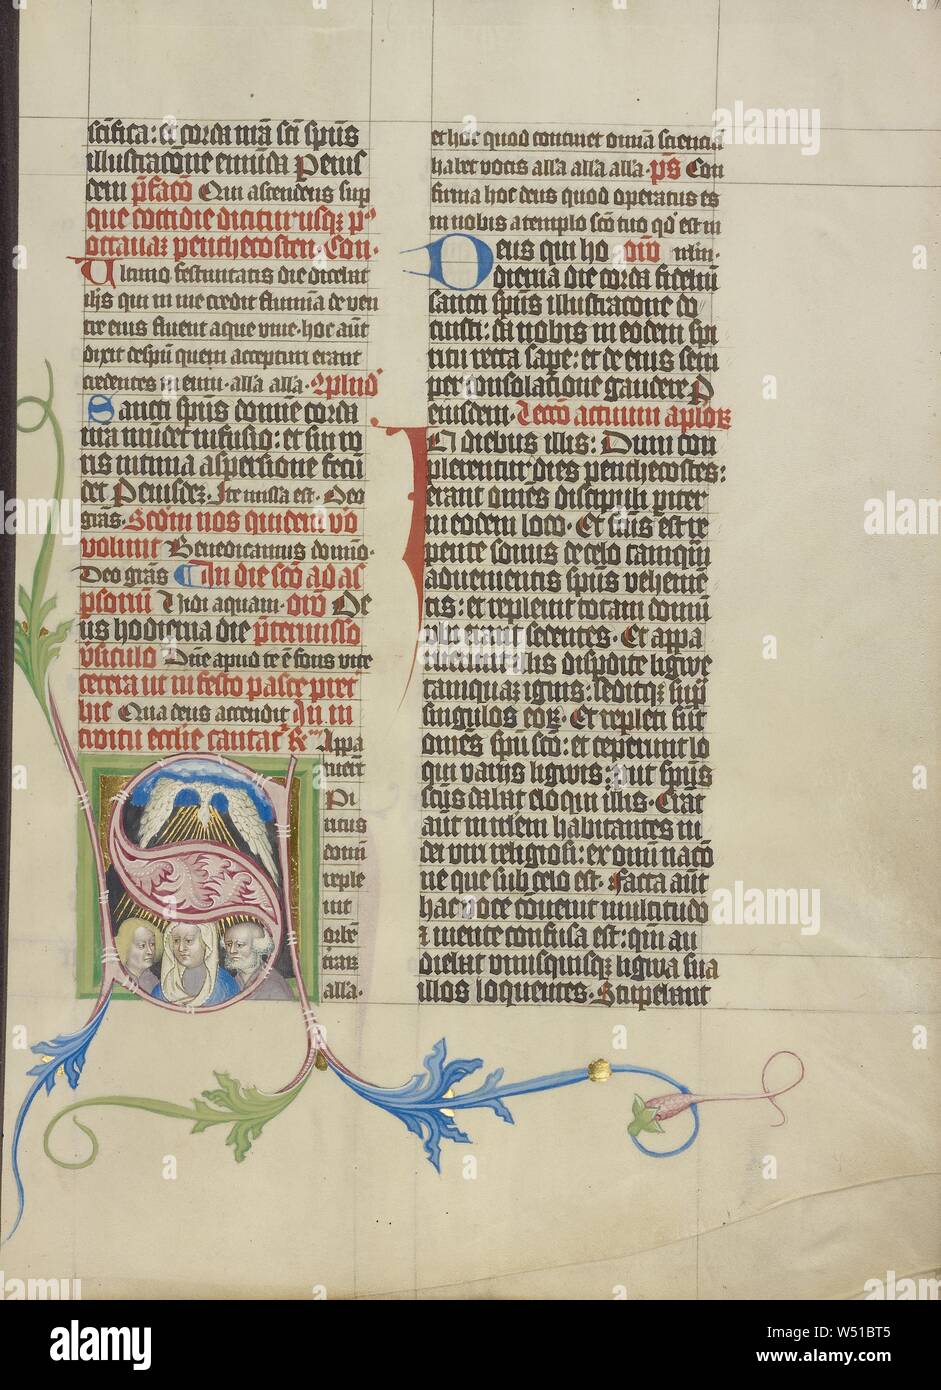 scifica: et corda nrā scī spūs
illustracōne emūda Per eius
dem p̄facō Qui ascendens sup
que cottidie dicitur usq p
octavaz penthecosten. Com.
Ultimo festivitatis die dicebat
ihs qui in me credit flumīa de ven
tre eius fluent aque vive. hoc aūt
dixit de spū quem accepturi erant
credentes in eum. alla alla. Cōplend
Sancti spūs domīe corda
nrā mūdet infusio: et sui ro
ris intima aspersione fecū
det Per eiusdez. Ite missa est. Deo
grās. Scdm nos quidem vo
volunt Benedicamus domīo.
Deo grās In die scō ad as
psoriū Vidi aquam. orō De
us hodierna die p̄termisso
vsiculo Dnē apud te ē fons vite
cetera ut in festo pasce pret
hic Qua deus accendit In in
troitu ecclie cantat R Appa
ruert
Pi
ritus
domī
reple
vit
orbē
traz
alla.
et hoc quod continet omīa scienciā
habet vocis alla alla alla. ps Con
firma hoc deus quod operatus es
in nobis a templo scō tuo qd est in
Deus qui ho orō
dierna die corda fideliū
sancti spūs illustracone do
cuisti: da nobis in eodem spi
ritu recta sape: et de eius sem
per consolacione gaudere P
eiusdem. Leccō actuum aplorz
In diebus illis: Dum con
plerentur dies penthecostes:
erant omēs discipuli piter
in eodem loco. Et fcūs est re
pente sonus de celo tamqm
advenientis spūs vehemē
tis: et replevit totam domū
vbi erant sedentes. Et appa
ruerunt illis dispdite ligwe
tamquaz ignis: seditqz supra
singulos eorz. Et repleti sūt
omēs spū scō: et ceperunt lo
qui varijs ligwis: put spūs
scūs dabat eloqui illis. Erāt
aut in irlem habitantes iu
dei viri religiosi: ex omī nacō
ne que sub celo est. Facta aūt
hac voce cōvenit multitudo
et mente confusa est: qm au
diebat vnusquisqz ligwa sua
illos loquentes. Stupebant
alamy
alamy
Image ID: W51BT5
www.alamy.com